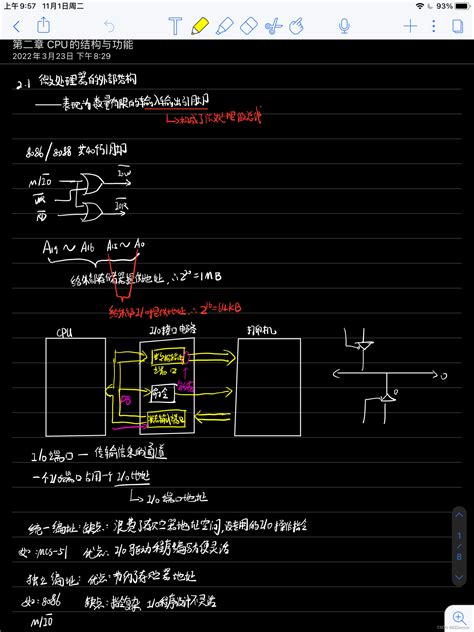 上午9:57 11月1日周二
93%
第二章 CPU的结构与功能
2022年3月23日 下午8:29
2.1 微处理器的外部结构
——表现为数量有限的输入输出引脚
↳构成了微处理器的总线
8086/8088 共40个引脚
M/I̅O̅
W̅R̅
R̅D̅
I̅O̅W̅
I̅O̅R̅
A19 ~ A16 A15 ~ A0
给外部存储器提供地址, ∴2^20=1MB
给外部I/O提供地址, ∴2^16=64KB
CPU I/O接口电路 打印机
DB
I/O端口 — 传输信息的通道
一个I/O端口占用一个I/O地址
↳I/O端口地址
统一编址: 缺点: 浪费了存储器地址空间,
如: MCS-51 优点: I/O驱动程序编写方便灵活
独立编址: 优点: 节约了存储器地址
如: 8086 缺点: 指令复杂, I/O程序设计不灵活
M/I̅O̅
1/8